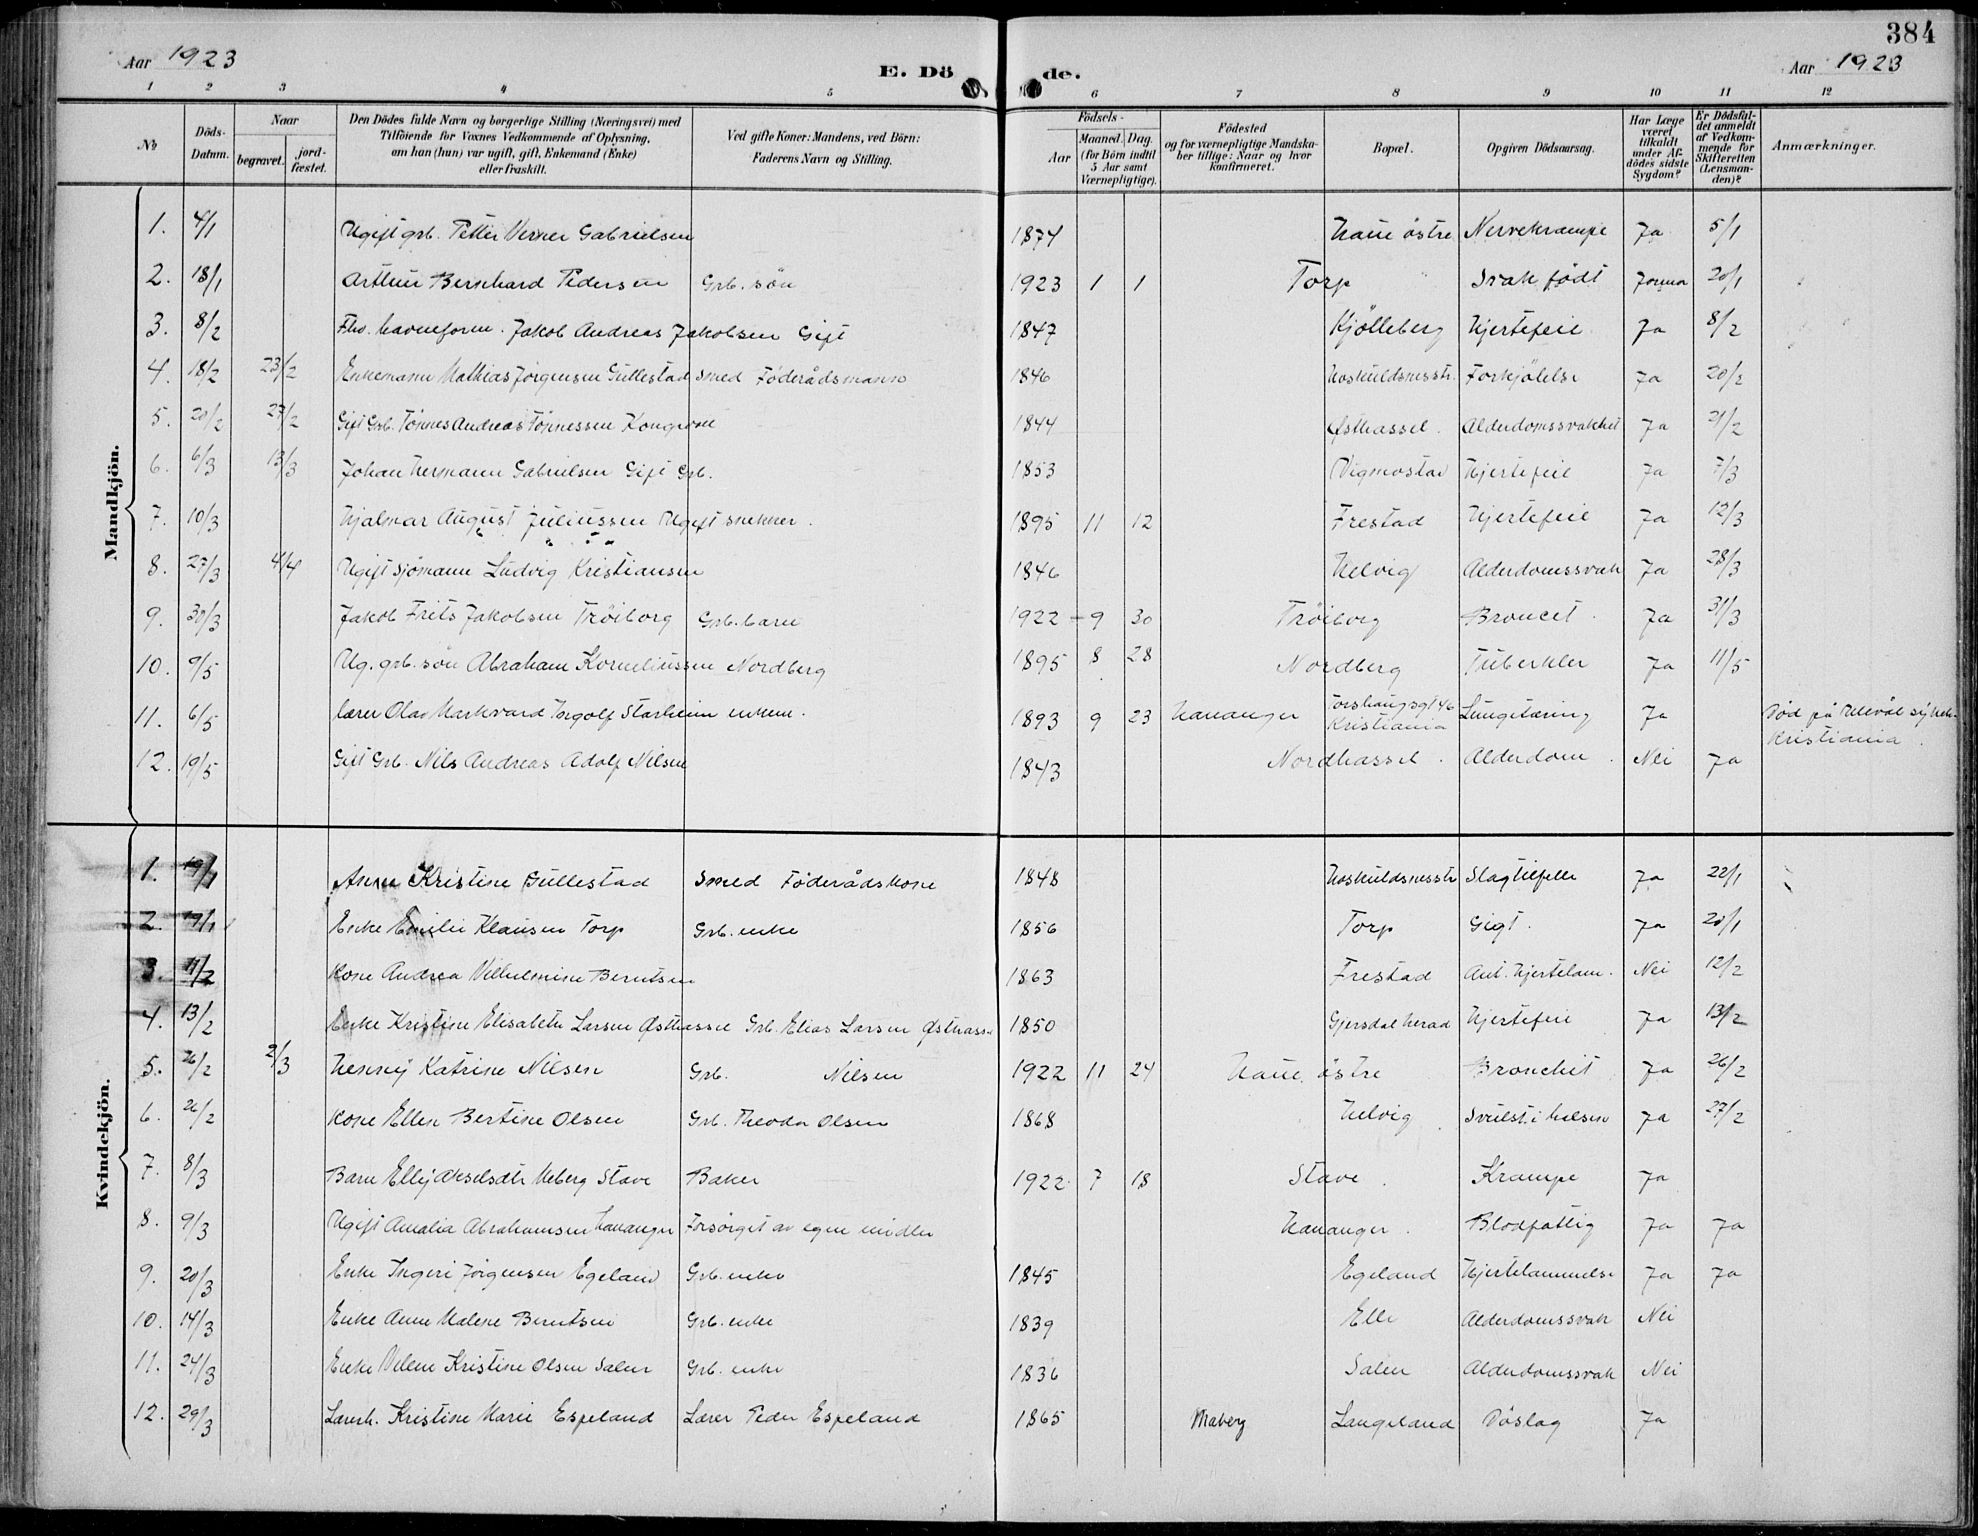 384
Aar 1923
E. Dö de.
Aar 1923
1 2 3 4 5 6 7 8 9 10 11 12
No
Döds-Datum.
Naar begravet. jordfæstet.
Den Dödes fulde Navn og borgerlige Stilling (Næringsvei) med
Tilföiende for Voxnes Vedkommende af Oplysning,
om han (hun) var ugift, gift, Enkemand (Enke)
eller fraskilt.
Ved gifte Koner: Mandens, ved Börn:
Faderens Navn og Stilling.
Födsels-
Aar
Maaned. Dag.
(for Börn indtil
5 Aar samt
Værnepligtige).
Födested
og for værnepligtige Mandskaber tillige: Naar og hvor
konfirmeret.
Bopæl.
Opgiven Dödsaarsag.
Har Læge været tilkaldt under Afdödes sidste Sygdom?
Er Dödsfaldet anmeldt af Vedkommende for Skifteretten (Lensmanden)?
Anmærkninger.
Mandkjön.
1. 4/1 Ugift grb. Petter Verner Gabrielsen 1874 Haue östre Nervekrampe Ja 5/1
2. 18/1 Arthur Bernhard Pedersen Grb. sön 1923 1 1 Torp Svak födt Jormor 20/1
3. 8/2 Fhv. havneform. Jakob Andreas Jakobsen Gift 1847 Kjölleberg Hjertefeil Ja 8/2
4. 18/2 23/2 Enkemann Mathias Jørgensen Gullestad smed Föderådsmann 1846 Hoskuldsnesstr. Forkjölelse Ja 20/2
5. 20/2 27/2 Gift Grb. Tönnes Andreas Tönnessen Kongsvoll 1844 Østhassel. Alderdomssvakhet Ja 21/2
6. 6/3 13/3 Johan Hermann Gabrielsen Gift Grb. 1853 Vigmostad Hjertefeil Ja 7/3
7. 10/3 Hjalmar August Juliussen Ugift snekker. 1895 11 12 Frestad Hjertefeil Ja 12/3
8. 27/3 4/4 Ugift sjömann Ludvig Kristiansen 1846 Helvig Alderdomssvak Ja 28/3
9. 30/3 Jakob Frits Jakobsen Tröiborg Grb. barn 1922 - 9 30 Tröiborg Broncit. Ja 31/3
10. 9/5 Ug. grb. sön Abraham Korneliussen Nordberg 1895 8 28 Nordberg Tuberkler Ja 11/5
11. 6/5 lærer Olav Markvard Ingolf Starheim enkem. 1893 9 23 Hananger Torshaugsgt 46 Kristiania Lungetæring Ja Död på Ullevål sykeh. Kristiania.
12. 19/5 Gift Grb. Nils Andreas Adolf Nilsen 1843 Nordhassel. Alderdom. Nei Ja
Kvindekjön.
1. 19/1 Anna Kristine Gullestad Smed Föderådskone 1848 Hoskuldsnesstr Slagtilfelle Ja 22/1
2. 19/1 Enke Emilie Klausen Torp Grb. enke 1856 Torp Gigt. Ja 20/1
3. 11/2 Kone Andrea Vilhelmine Berntsen 1863 Frestad Ant. Hjertelam. Nei 12/2
4. 13/2 Enke Kristine Elisabeth Larsen Østhassel Grb. Elias Larsen Østhassel 1850 Gjersdal herad Hjertefeil Ja 13/2
5. 26/2 2/3 Henny Katrine Nilsen Grb. Nilsen 1922 11 24 Haue östre Bronchit Ja 26/2
6. 26/2 Kone Ellen Bertine Olsen Grb. Theodor Olsen 1868 Helvig Svulst i halsen Ja 27/2
7. 8/3 Barn Elly Akselsdtr Meberg Stave Baker 1922 7 18 Stave. Krampe Ja
8. 9/3 Ugift Amalia Abrahamsen Hananger Forsörget av egne midler Hananger. Blodfattig Ja Ja
9. 20/3 Enke Ingeri Jörgensen Egeland Grb. enke 1845 Egeland Hjertelammelse Ja Ja
10. 14/3 Enke Anne Malene Berntsen Grb. enke 1839 Elle Alderdomssvak Nei
11. 24/3 Enke Velene Kristine Olsen Salen Grb. enke 1836 Salen Alderdomssvak Nei
12. 29/3 Lærerh. Kristine Marie Espeland Lærer Peder Espeland 1865 Maberg Langeland Döslag Ja